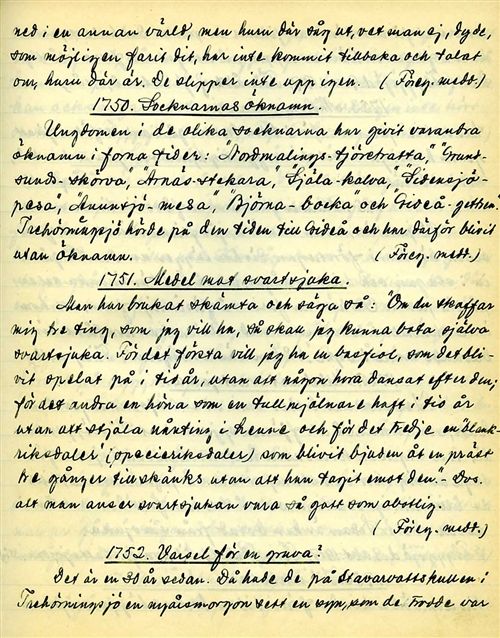 ned i en annan värld, men huru där såg ut, vet man ej, ty de,
som möjligen farit dit, har inte kommit tillbaka och talat
om, huru där är. De slipper inte upp igen. (Föreg. medd.)
1750. Socknarnas öknamn.
Ungdomen i de olika socknarna har givit varandra
öknamn i forna tider: "Nordmalings-tjöretratta", "Grund-
sunds-skörva", "Arnäs-stekara", "Själa-kalva", "Sidensjö-
pesa", "Anundsjö-mesa", "Björna-bocka och "Gideå-getter."
Trehörningsjö hörde på den tiden till Gideå och har därför blivit
utan öknamn. (Föreg. medd.)
1751. Medel mot svartsjuka.
Man har brukat skämta och säga så: "Om du skaffar
mig tre ting, som jag vill ha, så skall jag kunna bota själva
svartsjuka. För det första vill jag ha en basfiol, som det bli-
vit spelat på i tio år, utan att någon hora dansat efter den;
för det andra en höna som en tullmjölnare haft i tio år
utan att stjäla någonting i henne och för det tredje en blank-
riksdaler (specieriksdaler) som blivit bjuden åt en präst
tre gånger till skänks utan att han tagit emot den." - Dvs.
att man anser svartsjukan vara så gott som obotlig.
(Föreg. medd.)
1752. Varsel för en gruva?
Det är en 30 år sedan. Då hade de på Stavarvattshullen i
Trehörningsjö en nyårsmorgon sett en syn, som de trodde var